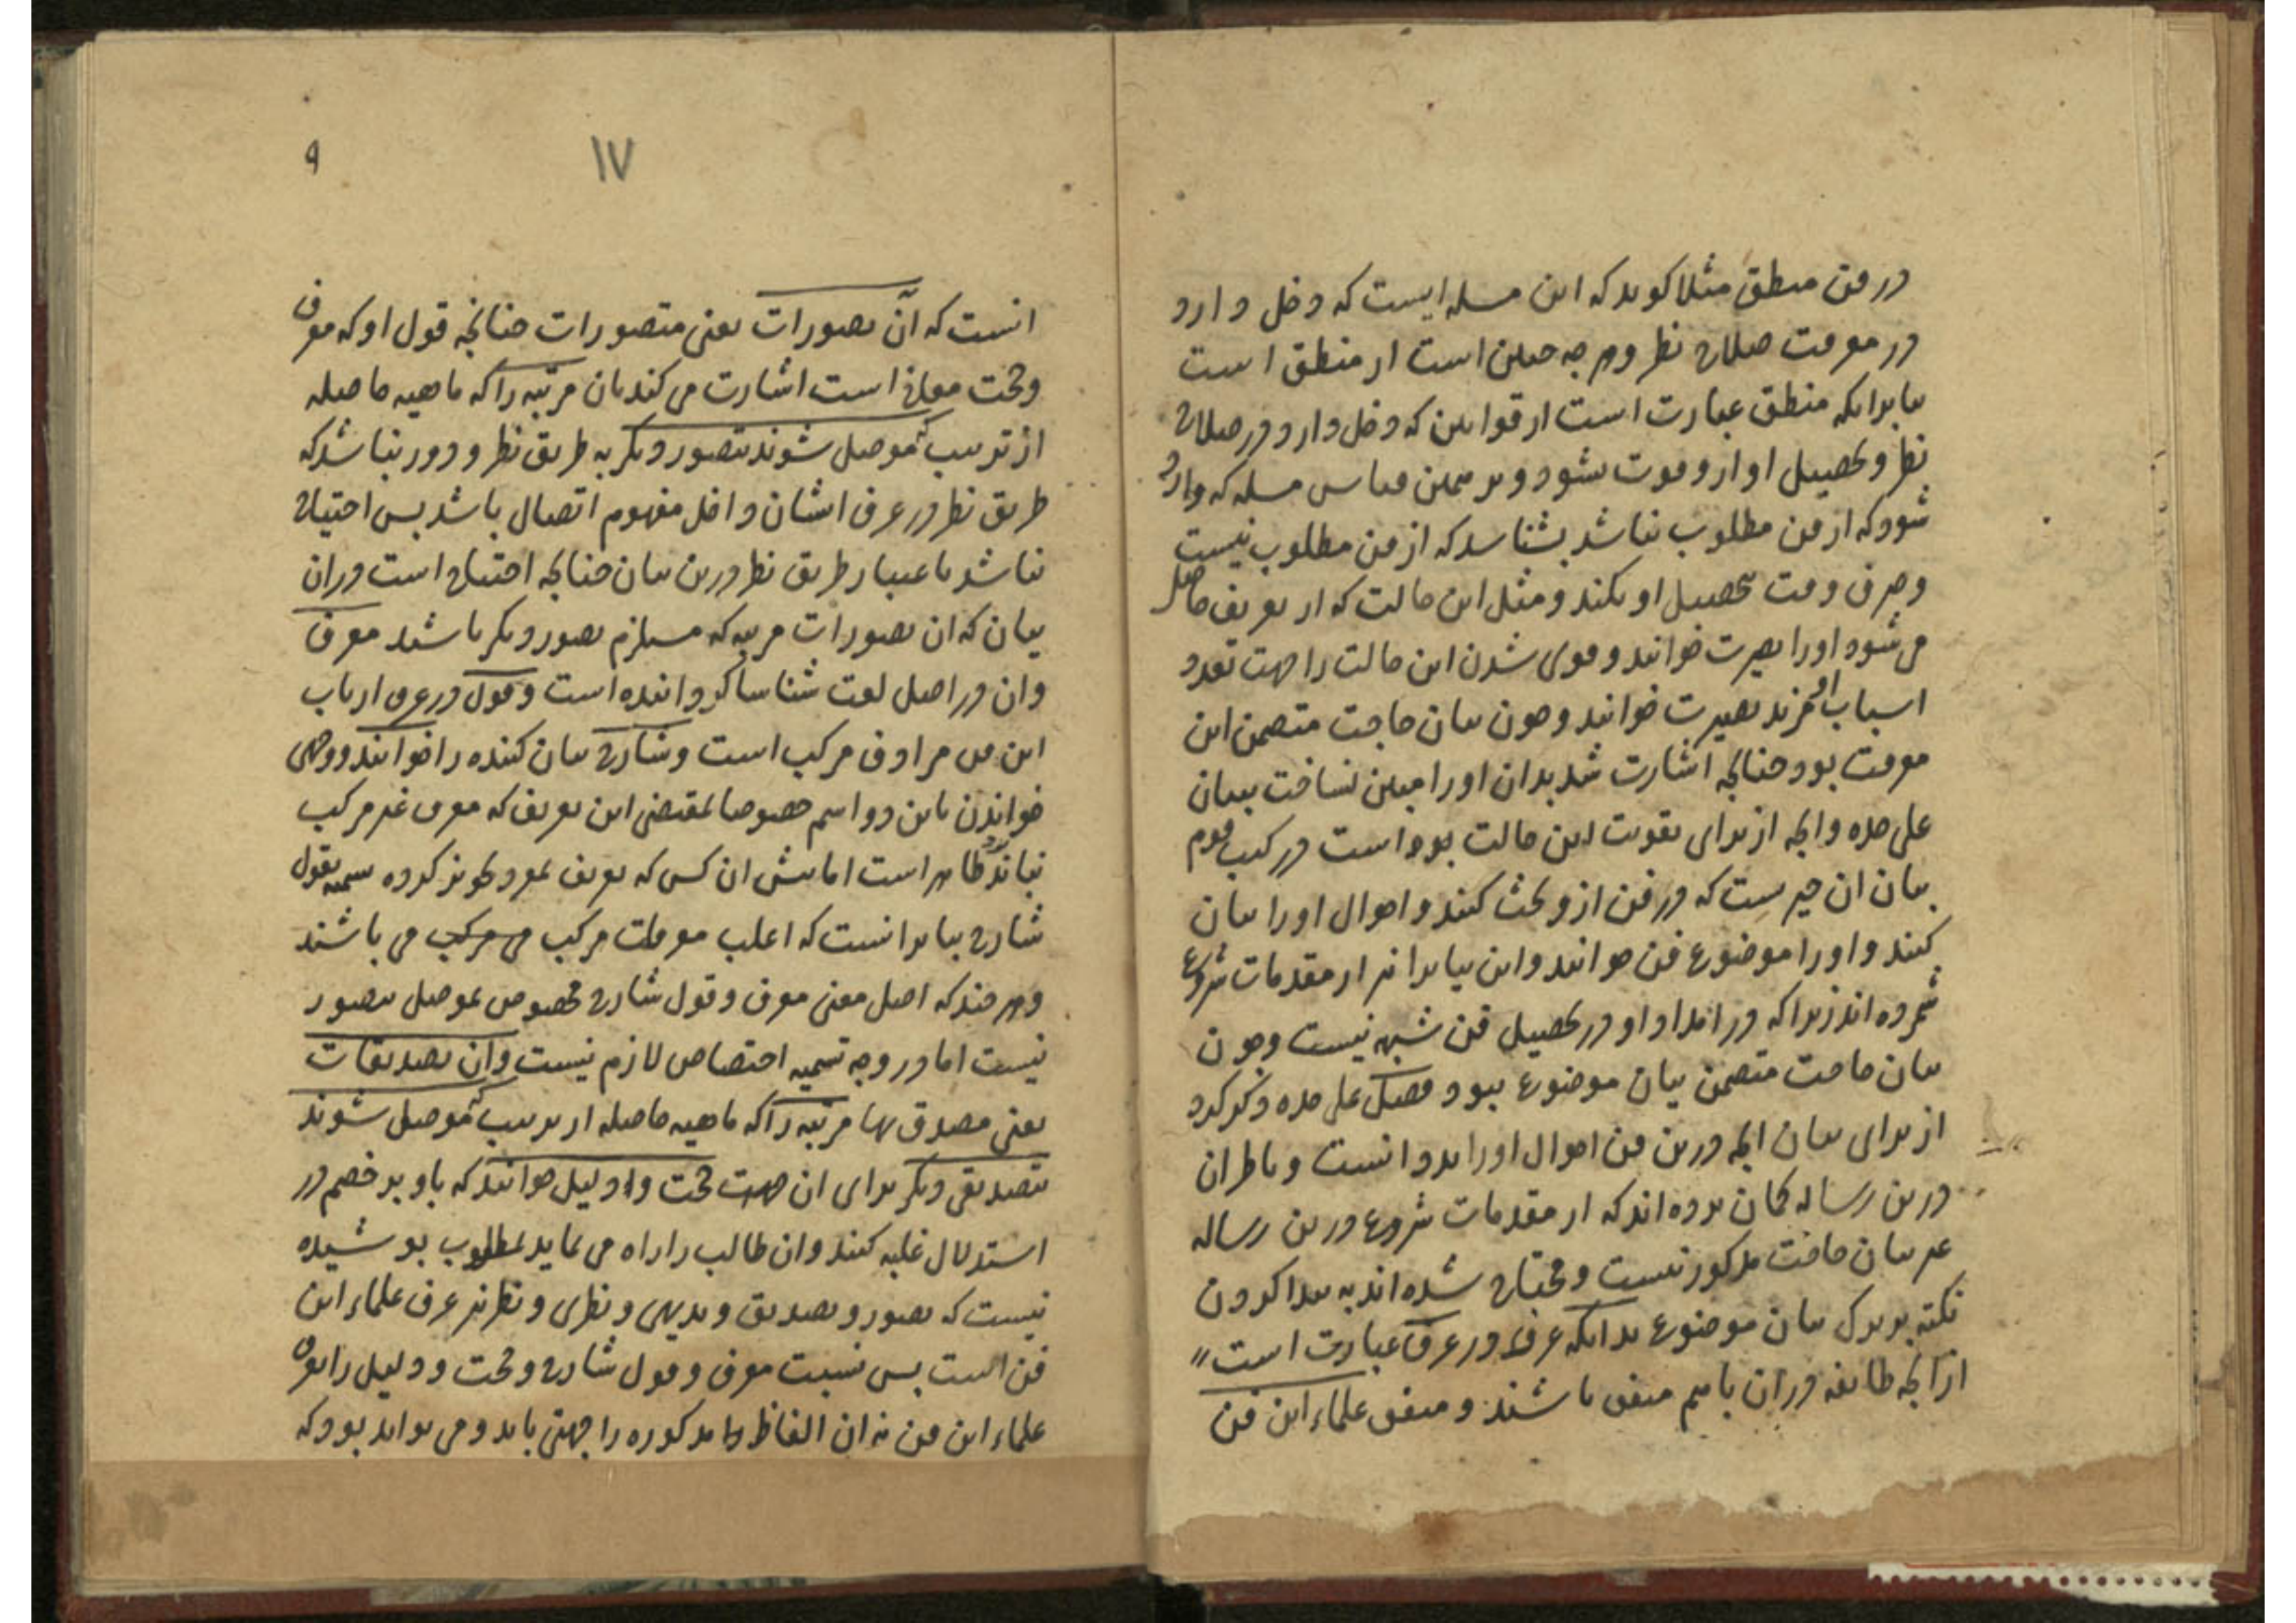 در فن منطق مثلا کوید که این مسله ایست که دخل دارد
در معرفت صلاح نظر و هر چه چنین است از منطق است
بنابرانکه منطق عبارت است از قوانین که دخل دارد در صلاح
نظر و تحصیل او ازو فوت نشود و بر همین قیاس مسله که وارد
شود که از فن مطلوب نباشد بشناسد که از فن مطلوب نیست
و صرف وقت بتحصیل او نکند و مثل این حالت که از تعریف حاصل
می شود او را بصیرت خوانند و قوی شدن این حالت را جهت تعدد
اسباب او مزید بصیرت خوانند و چون بیان حاجت متضمن این
معرفت بود چنانچه اشارت شد بدان او را مبین نساخت ببیان
علی حده و انچه از برای تقویت این حالت بوده است در کتب قوم
بیان ان چیزست که در فن ازو بحث کنند و احوال او را بیان
کنند و او را موضوع فن خوانند و این بیان را نیز از مقدمات شروع
شمرده اند زیرا که در امداد او در تحصیل فن شبهه نیست و چون
بیان حاجت متضمن بیان موضوع نبود فصل علی حده ذکر کرد
از برای بیان انچه درین فن احوال او را بدو انست و ناظران
درین رساله کمان برده اند که از مقدمات شروع درین رساله
غیر بیان حاجت مذکور نیست و محتاج شده اند به پیدا کردن
نکته بر ترک بیان موضوع بدانکه عرف در عرف عبارت است
از آنچه طایفه دران باهم متفق باشند و متفق علماء این فن
۱۷
۹
انست که آن تصورات یعنی متصورات چنانچه قول او که معرف
و حجت معانی است اشارت می کند بان مرتبه را که ماهیه حاصله
از ترتیب که موصل شوند بتصور دیکر به طریق نظر و دور نباشد که
طریق نظر در عرف ایشان داخل مفهوم اتصال باشد پس احتیاج
نباشد باعتبار طریق نظر درین بیان چنانچه احتیاج است دران
بیان که ان تصورات مرتبه که مستلزم تصور دیکر باشند معرف
وان در اصل لغت شناسا کرداننده است و قول در عرف ارباب
این فن مرادف مرکب است و شارح بیان کننده را خوانند و وجه
خواندن باین دو اسم خصوصا بمقتضی این تعریف که معرف غیر مرکب
نباشد ظاهر است اما پیش ان کس که تعریف بمفرد تجویز کرده تسمیه بقول
شارح بنابر انست که اغلب معرفات مرکب می باشند
و هر چند که اصل معنی معرف و قول شارح مخصوص بموصل بتصور
نیست اما در وجه تسمیه اختصاص لازم نیست وان تصدیقات
یعنی مصدق بها مرتبه را که ماهیه حاصله از ترتیب که موصل شوند
بتصدیقی دیکر برای ان جهت حجت و دلیل خوانند که باو بر خصم در
استدلال غلبه کنند وان طالب را راه می نماید بمطلوب پوشیده
نیست که تصور و تصدیق و بدیهی و نظری و نظر نیز عرف علماء این
فن است پس نسبت معرف و قول شارح و حجت و دلیل را بعرف
علماء این فن نه ان الفاظ مذکوره را جهتی باید و می تواند بود که